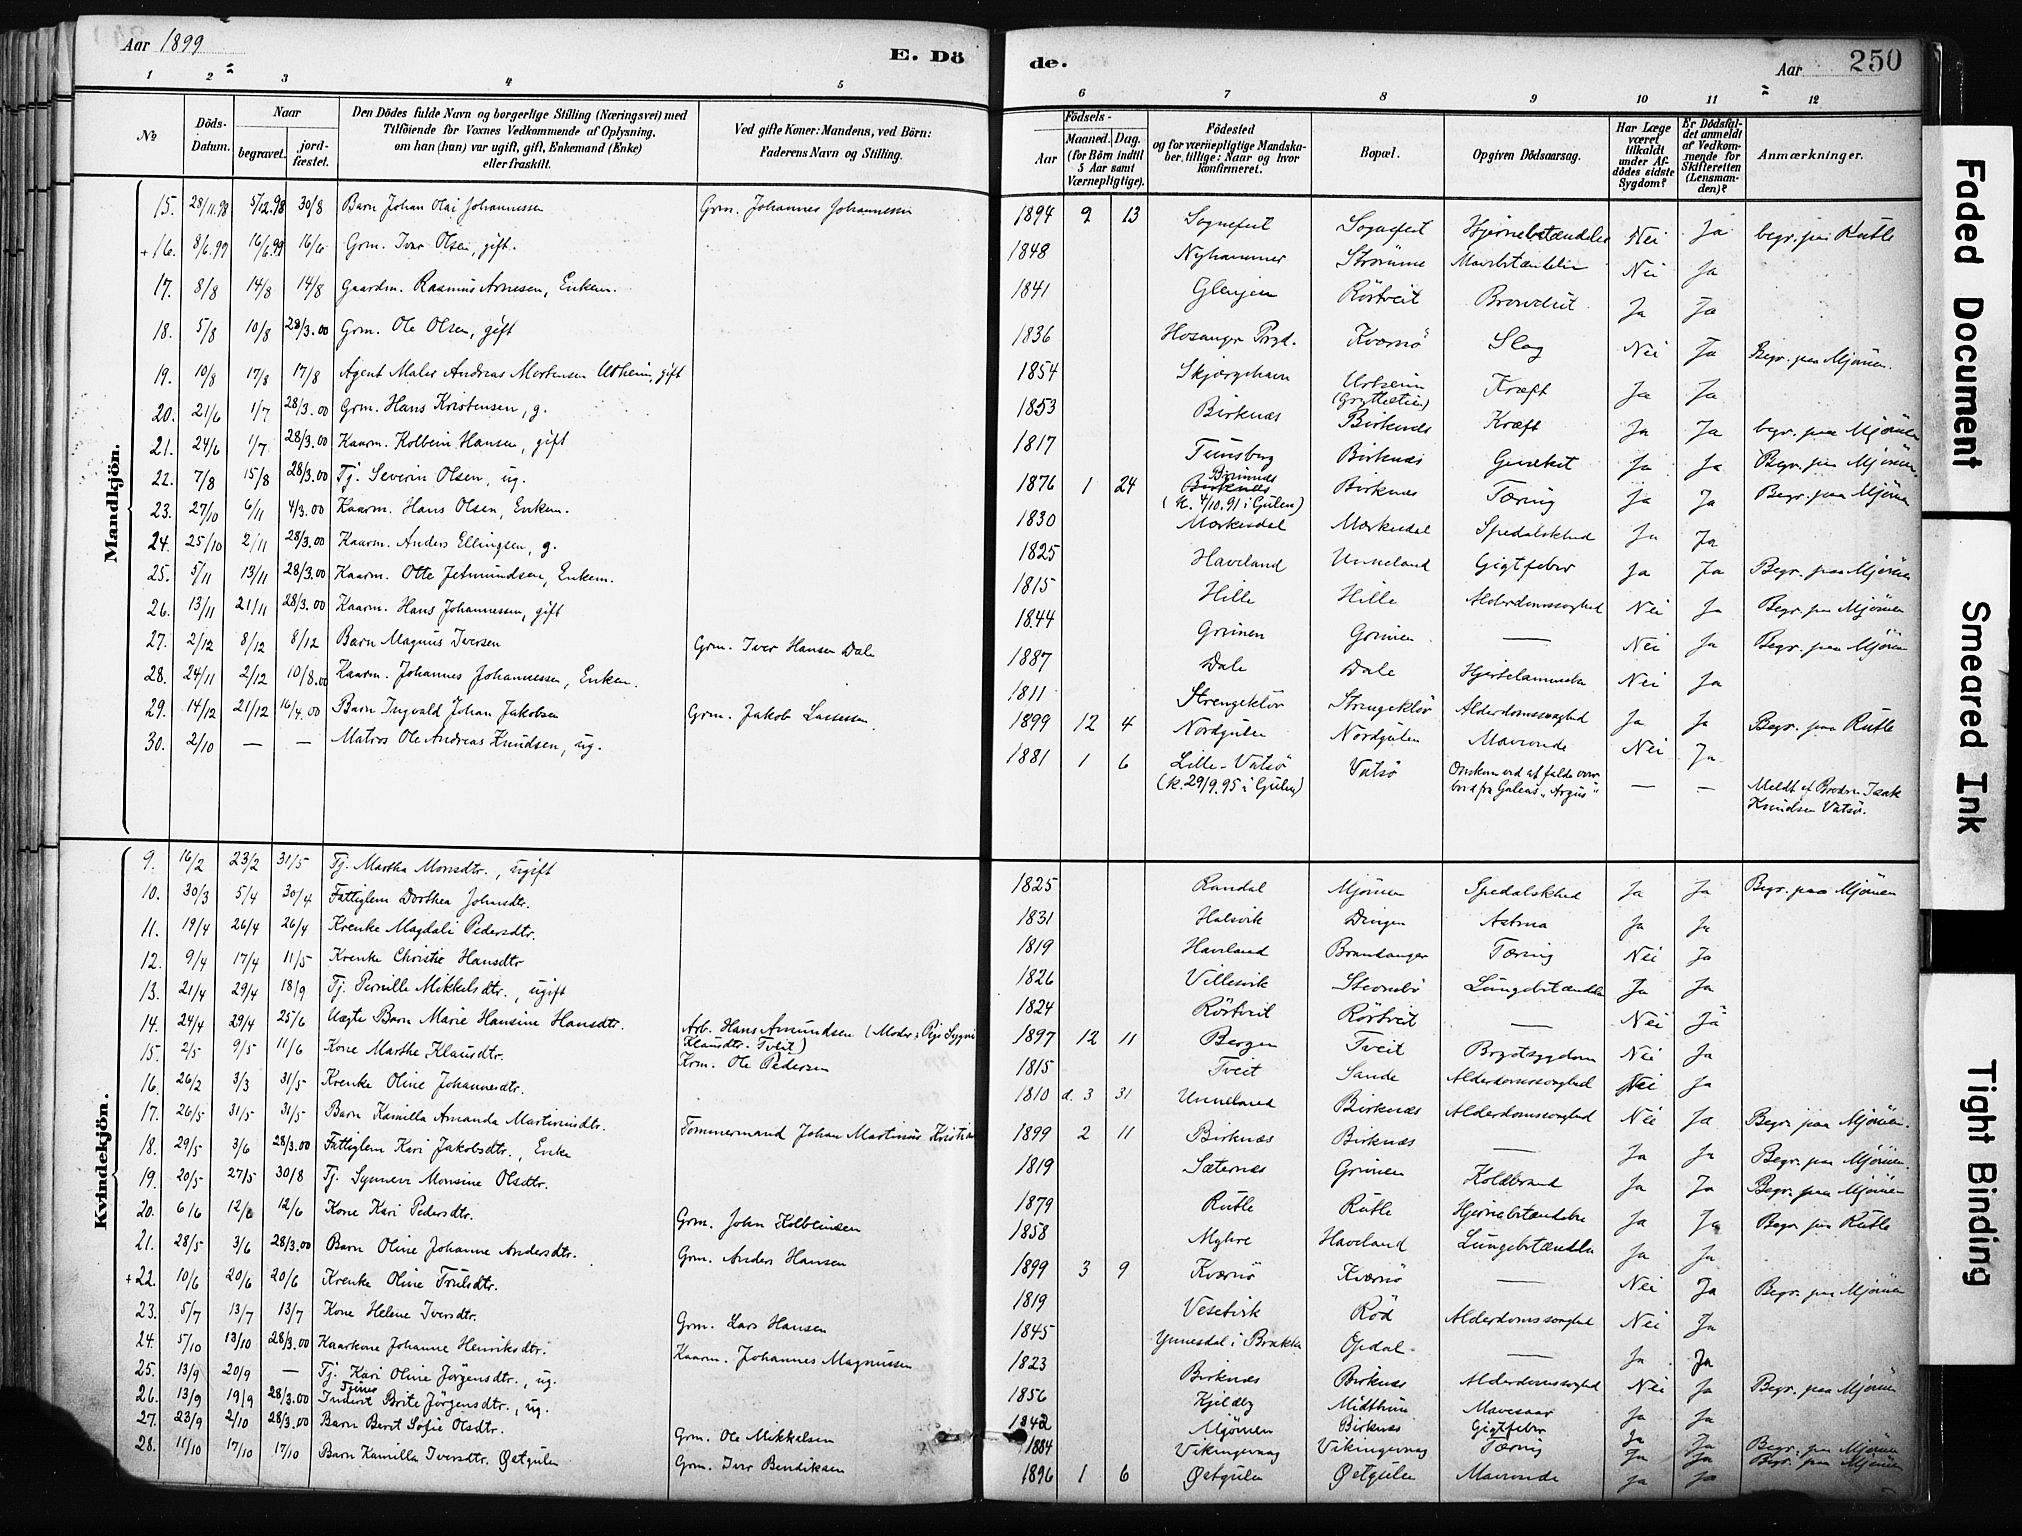 Aar 1899
E. Dö
de.
Aar
250
1 2 3 4 5
6 7 8 9 10 11 12
No
Döds-Datum.
Naar
begravet.
jordfæstet.
Den Dödes fulde Navn og borgerlige Stilling (Næringsvei) med
Tilföiende for Voxnes Vedkommende af Oplysning,
om han (hun) var ugift, gift, Enkemand (Enke)
eller fraskilt.
Ved gifte Koner: Mandens, ved Börn:
Faderens Navn og Stilling.
Födsels-
Aar
Maaned. Dag.
(for Börn indtil
5 Aar samt
Værnepligtige).
Födested
og for værnepligtige Mandska-
ber, tillige: Naar og hvor
konfirmeret.
Bopæl.
Opgiven Dödsaarsag.
Har Læge
været
tilkaldt
under Af-
dödes sidste
Sygdom?
Er Dödsfal-
det anmeldt
af Vedkom-
mende for
Skifteretten
(Lensman-
den)?
Anmærkninger.
Mandkjön.
15. 28/11.98 5/12.98 30/8 Barn Johan Olai Johannessen Grm. Johannes Johannessen 1894 9 13 Sognefest Sognefest Hjernebetændelse Nei Ja begr. paa Rutle
+16. 8/6.99 16/6.99 16/6 Grm. Iver Olsen, gift. 1848 Nyhammer Strömme Mavebetændelse Nei Ja
17. 8/8 14/8 14/8 Gaardm. Rasmus Arnesen, Enkem. 1841 Glenjen Rörtveit Ja Ja
18. 5/8 10/8 28/3.00 Grm. Ole Olsen, gift 1836 Hosanger Prgd. Kværnö Slag Nei Ja Begr. paa Mjömen.
19. 10/8 17/8 17/8 Agent Maler Andreas Mortensen Utheim, gift 1854 Skjærgehavn Kræft Ja Ja
20. 21/6 1/7 28/3.00 Grm. Hans Kristensen, g. 1853 Birknæs Birknæs Kræft Ja Ja begr. paa Mjömen
21. 24/6 1/7 28/3.00 Kaarm. Kolbein Hansen, gift 1817 Tunsberg Birknæs Ja Ja Begr. paa Mjömen
22. 7/8 15/8 28/3.00 Tj. Severin Olsen, ug. 1876 1 24 Birknæs Tæring Ja Ja Begr. paa Mjömen
(k. 4/10.91 i Gulen)
23. 27/10 6/11 4/3.00 Kaarm. Hans Olsen, Enkem. 1830 Mærkesdal Mærkesdal Spedalskhed Ja Ja
24. 25/10 2/11 28/3.00 Kaarm. Anders Ellingsen, g. 1825 Haveland Unneland Gigtfeber Ja Ja Begr. paa Mjömen
25. 5/11 13/11 28/3.00 Kaarm. Otte Jetmundsen, Enkem. 1815 Hille Hille Alderdomssvaghed Nei Ja Begr. paa Mjömen
26. 13/11 21/11 28/3.00 Kaarm. Hans Johannessen, gift 1844 Grinen Grinen — Nei Ja Begr. paa Mjömen
27. 2/12 8/12 8/12 Barn Magnus Iversen Grm. Iver Hansen Dale 1887 Dale Dale Hjertelammelse Nei Ja
28. 24/11 2/12 10/8.00 Kaarm. Johannes Johannessen, Enkem. 1811 Strengeklöv Strengeklöv Alderdomssvaghed Ja Ja Begr. paa Rutle
29. 14/12 21/12 16/4.00 Barn Ingvald Johan Jakobsen Grm. Jakob Lassesen. 1899 12 4 Nordgulen Nordgulen Mavonde Nei Ja
30. 2/10 — — Matros Ole Andreas Knudsen, ug. 1881 1 6 Lille-Vatsö Vatsö Omkom ved at falde over — —
(k. 29/9.95 i Gulen) bord fra Galeas "Argus" Meldt af Brodren Isak
Knudsen Vatsö.
Kvindekjön.
9. 16/2 23/2 31/5 Tj. Martha Monsdtr., ugift 1825 Randal Mjömen Spedalskhed Ja Ja Begr. paa Mjömen
10. 30/3 5/4 30/4 Fattiglem Dorthea Johnsdtr. 1831 Halsvik Dingen Astma Ja Ja
11. 19/4 26/4 26/4 Krenke Magdali Pedersdtr. 1819 Haveland Brandanger Tæring Nei Ja
12. 9/4 17/4 11/5 Krenke Christie Hansdtr 1826 Villesvik Steensbö Lungebetændelse Ja Ja
13. 21/4 29/4 18/9 Tj. Pernille Mikkelsdtr., ugift 1824 Rörtveit Rörtveit — Nei Ja
14. 24/4 29/4 25/6 Uægte Barn Marie Hansine Hansdtr. Arb. Hans Amundsen (Moder: Pige Sygni 1897 12 11 Bergen Tveit Brystsygdom Nei Ja
Klausdtr. Tveit)
15. 2/5 9/5 11/6 Kone Marthe Klausdtr. Krm. Ole Pedersen 1815 Tveit Sande Alderdomssvaghed Nei Ja
16. 26/2 3/3 31/5 Krenke Oline Johannesdtr. 1810 d. 3 31 Unneland Birknæs Alderdomssvaghed Nei Ja Begr. paa Mjömen.
17. 26/5 31/5 31/5 Barn Kamilla Amanda Martinusdtr. Tømmermand Johan Martinus Kristian 1899 2 11 Birknæs Birknæs — Ja Ja Begr. paa Mjömen.
18. 29/5 3/6 28/3.00 Fattiglem Kari Jakobsdtr., Enke 1819 Sæternæs Grinen Koldbrand Ja Ja Begr. paa Mjömen
19. 20/5 27/5 30/8 Tj. Synnevi Monsine Olsdtr. 1879 Rutle Rutle Hjernebetændelse Ja Ja Begr. paa Rutle
20. 6/6 12/6 12/6 Kone Kari Pedersdtr. Grm. John Kolbeinsen 1858 Myhre Haveland Lungebetændelse Ja Ja
21. 28/5 3/6 28/3.00 Barn Oline Johanne Andersdtr. Grm. Anders Hansen 1899 3 9 Kværnö Kværnö — Nei Ja Begr. paa Mjömen
+22. 10/6 20/6 20/6 Krenke Oline Trulsdtr. 1819 Vesetvik Röd Alderdomssvaghed Nei Ja
23. 5/7 13/7 13/7 Kone Helene Iversdtr. Grm. Lars Hansen 1845 Ynnesdal i Brekke Opdal — Ja Ja
24. 5/10 13/10 28/3.00 Kaarkone Johanne Henriksdtr. Kaarm. Johannes Magnussen 1823 Birknæs Birknæs Alderdomssvaghed Nei Ja Begr. paa Mjömen
25. 13/9 20/9 — Tj. Kari Oline Jörgensdtr., ug. 1856 Midthun Mavesaar Ja Ja
26. 13/9 19/9 28/3.00 Inderst Brite Jörgensdtr., ug. 1842 Mjömen Birknæs Gigtfeber Ja Ja Begr. paa Mjömen
27. 23/9 2/10 28/3.00 Barn Berit Sofie Olsdtr. Grm. Ole Mikkelsen 1884 Vikingevaag Vikingevaag Tæring Ja Ja Begr. paa Mjömen
28. 11/10 17/10 17/10 Barn Kamilla Iversdtr. Østgulen Grm. Iver Bendiksen 1896 1 6 Østgulen Østgulen Mavonde Ja Ja
Faded Document
Smeared Ink
Tight Binding